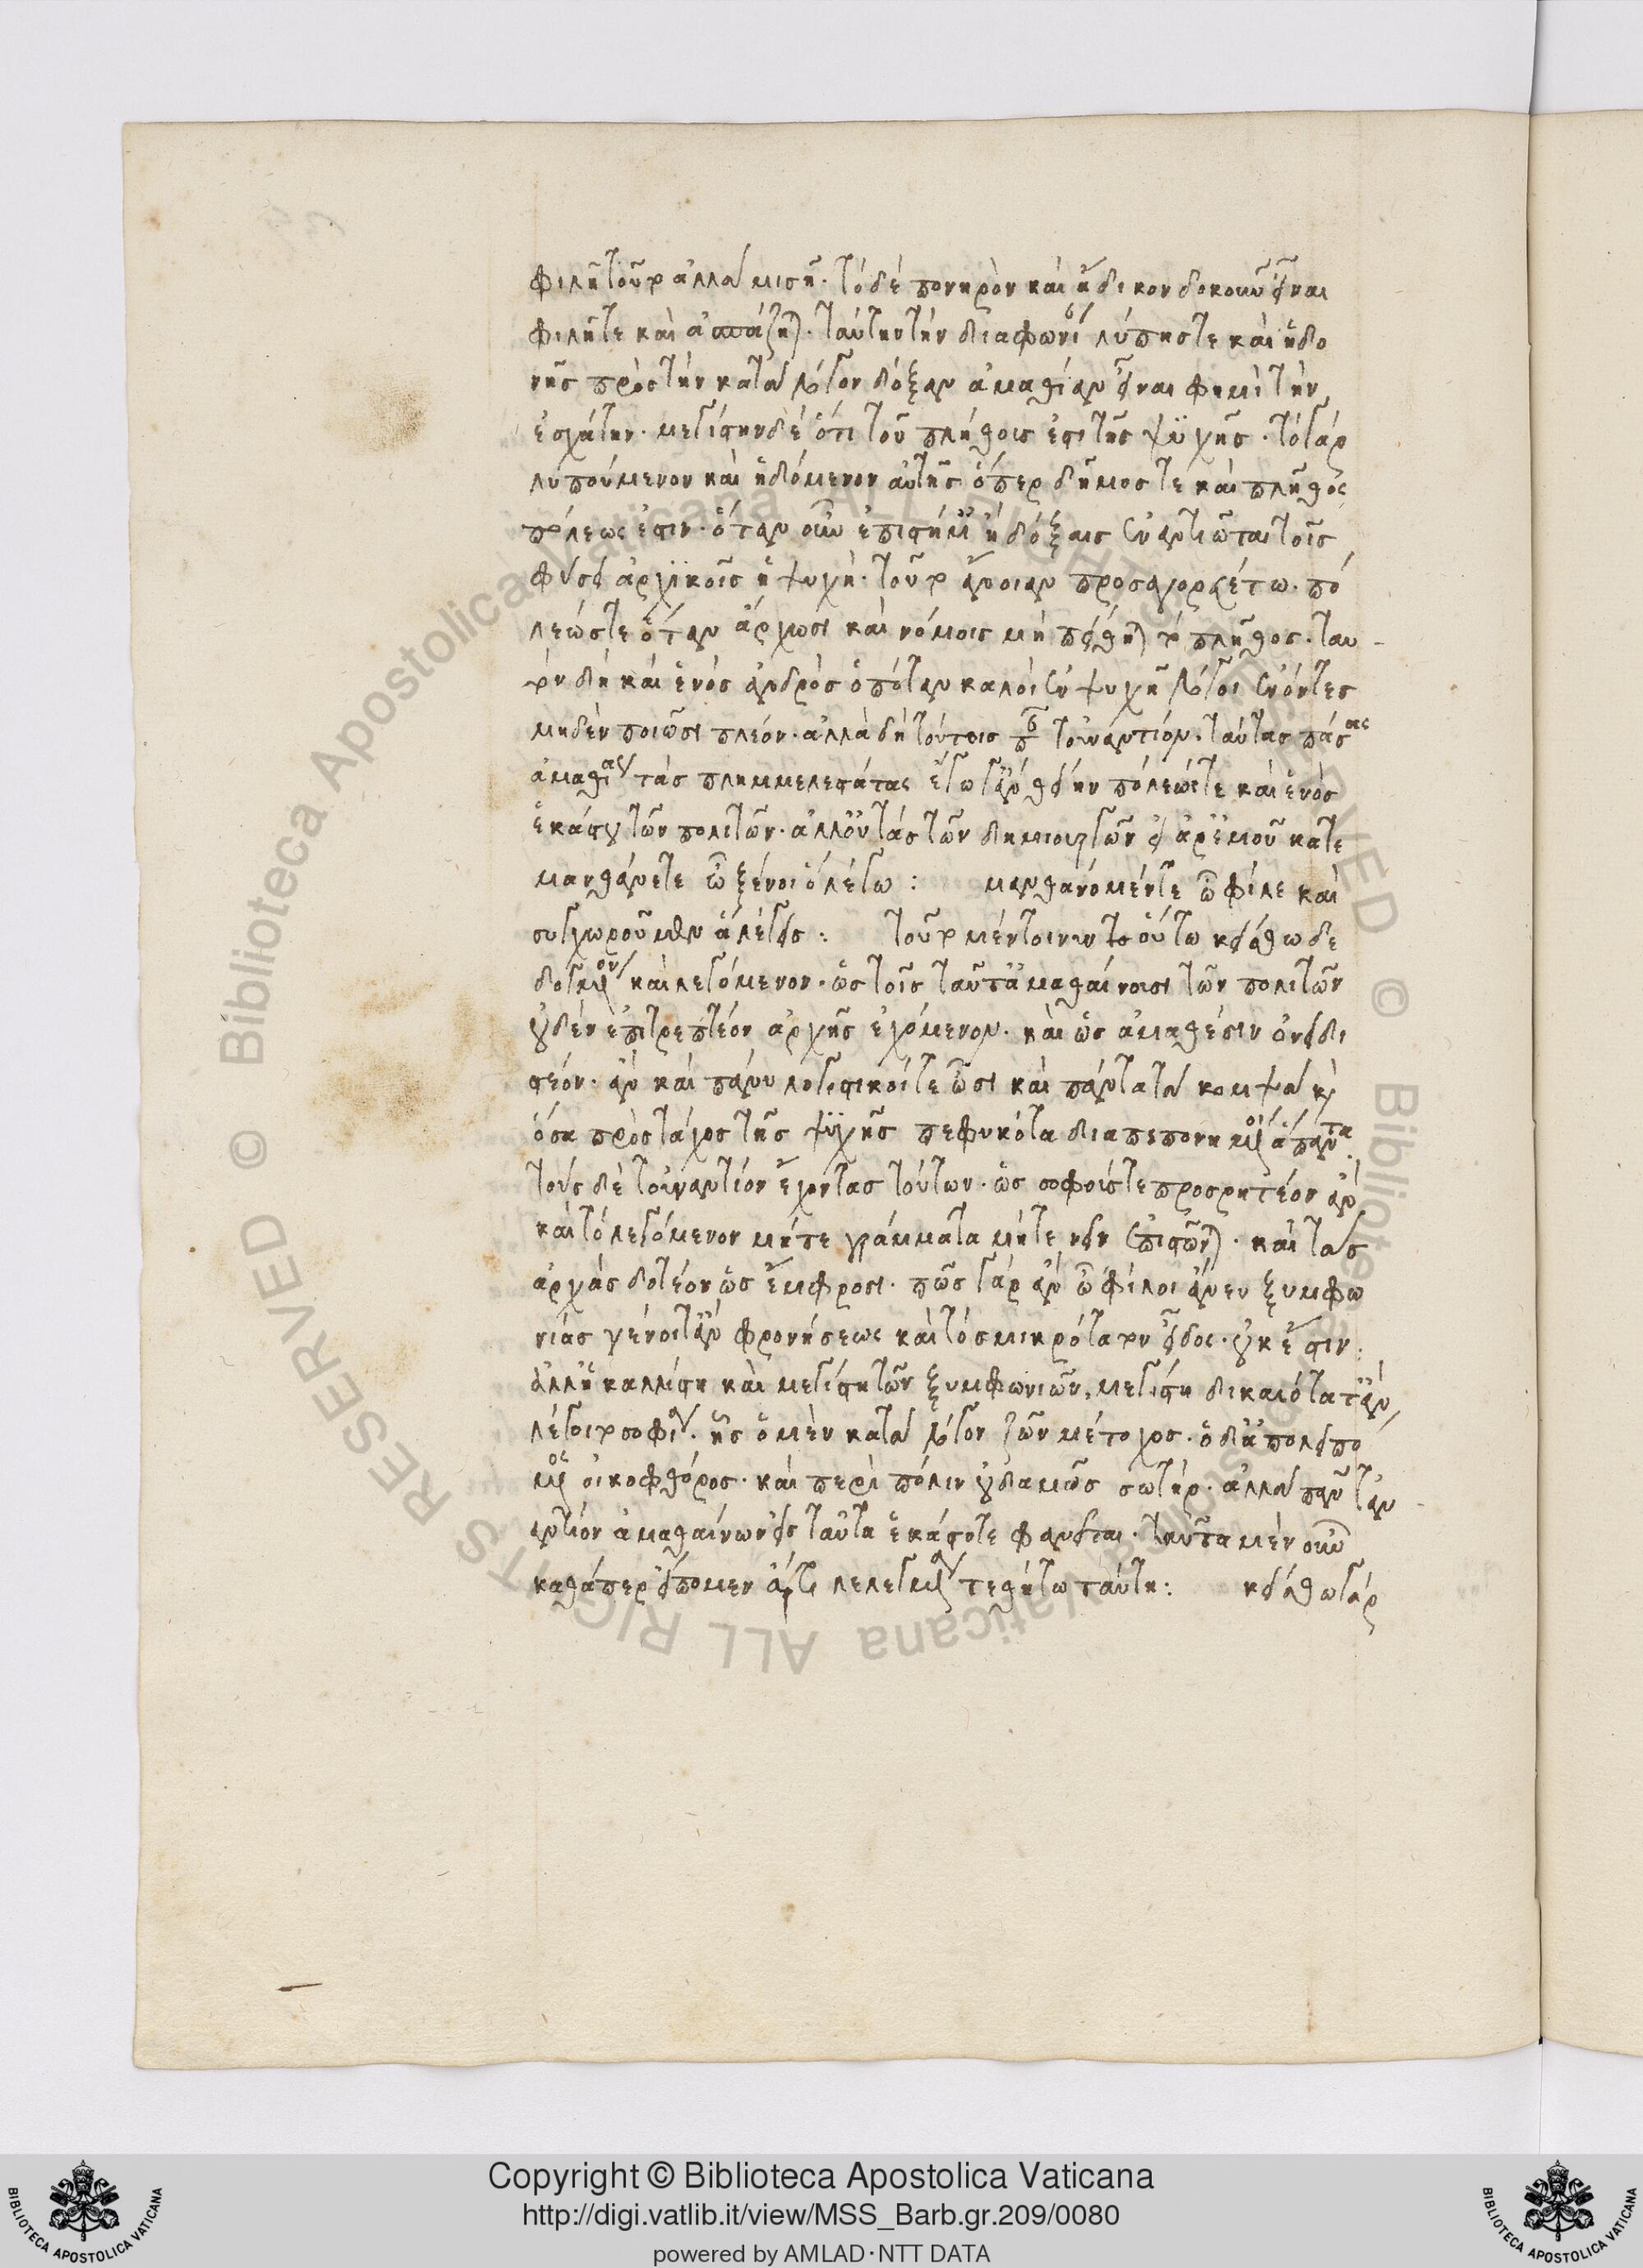 φιλῆ τοῦτο ἀλλὰ μισῆ· τὸ δὲ πονηρὸν καὶ ἄδικον δοκοῦν εἶναι
φιλῆ τε καὶ ἀσπάζηται· ταύτην τὴν διαφωνίαν λύπης τε καὶ ἡδο
νῆς πρὸς τὴν κατὰ λόγον δόξαν ἀμαθίαν εἶναι φημὶ τὴν
ἐσχάτην· μεγίστην δὲ ὅτι τοῦ πλήθους ἐστὶ τῆς ψυχῆς· τὸ γὰρ
λυπούμενον καὶ ἡδόμενον αὐτῆς ὅπερ δῆμός τε καὶ πλῆθός
πόλεως ἐστιν· ὅταν οὖν ἐπιστήμαις ἢ δόξαις ἐναντιῶται τοῖς
φύσει ἀρχικοῖς ἡ ψυχὴ· τοῦτο ἄνοιαν προσαγορευέτω· πό
λεώς τε ὅταν ἄρχωσι καὶ νόμοις μὴ πείθηται τὸ πλῆθος· ταυ
τὸν δὴ καὶ ἑνὸς ἀνδρὸς ὁπόταν καλοὶ ἐν ψυχῆ λόγοι ἐνόντες
μηδὲν ποιῶσι πλέον· ἀλλὰ δὴ τούτοις πᾶν τοὐναντίον· ταύτας πάσας
ἀμαθίας τὰς πλημμελεστάτας ἔγωγ' ἂν θείην πόλεώς τε καὶ ἑνὸς
ἑκάστου τῶν πολιτῶν· ἀλλ' οὐ τὰς τῶν δημιουργῶν εἰ ἄρα μου κατα
μανθάνετε ὦ ξένοι ὃ λέγω : μανθάνομέν τε ὦ φίλε καὶ
συγχωροῦμεν ἃ λέγεις : τοῦτο μὲν τοίνυν τὸ οὕτω κείσθω δε
δογμένον καὶ λεγόμενον· ὡς τοῖς ταῦτ' ἀμαθαίνουσι τῶν πολιτῶν
οὐδὲν ἐπιτρεπτέον ἀρχῆς ἐχόμενον· καὶ ὡς ἀμαθέσιν ὀνειδι
στέον· ἂν καὶ πάνυ λογιστικοί τε ὦσι καὶ πάντα τὰ κομψὰ καὶ
ὅσα πρὸς τάχος τῆς ψυχῆς πεφυκότα διαπεπονημένοι ἅπαντα·
τοὺς δὲ τοὐναντίον ἔχοντας τούτων· ὡς σοφούς τε προσρητέον ἂν
καὶ τὸ λεγόμενον μήτε γράμματα μήτε νεῖν ἐπιστῶνται· καὶ τὰς
ἀρχὰς δοτέον ὡς ἔμφροσι· πῶς γὰρ ἂν ὦ φίλοι ἄνευ ξυμφω
νίας γένοιτ' ἂν φρονήσεως καὶ τὸ σμικρότατον εἶδος· οὐκ ἔστιν·
ἀλλ' ἡ καλλίστη καὶ μεγίστη τῶν ξυμφωνιῶν, μεγίστη δικαιότατ' ἂν
λέγοιτο σοφία· ἧς ὁ μὲν κατὰ λόγον ζῶν μέτοχος· ὁ δ' ἀπολειπό
μενος οἰκοφθόρος· καὶ περὶ πόλιν οὐδαμῶς σωτὴρ· ἀλλὰ πᾶν τοὐν
αντίον ἀμαθαίνων εἰς ταῦτα ἑκάστοτε φανεῖται· ταῦτα μὲν οὖν
καθάπερ εἴπομεν ἄρτι λελεγμένα τεθήτω ταύτη : κείσθω γὰρ